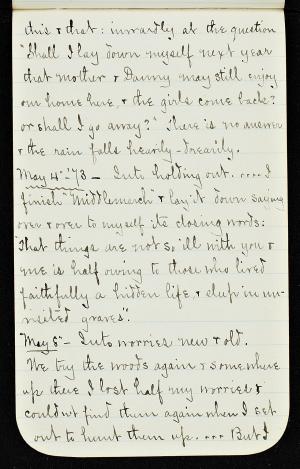 this & that: inwardly at the question
"Shall I lay down myself next year
that mother & Danny may still enjoy
our home here, & the girls come back?
or shall I go away?" There is no answer
& the rain falls heavily - drearily.
May 4th '73 - Into holding out. .... I
finish "Middlemarch" & lay it down saying
over & over to myself its closing words:
"That things are not so ill with you &
me is half owing to those who lived
faithfully a hidden life, & sleep in un-
visited graves".
May 5 - Into worries new & old.
We try the woods again & somewhere
up there I lost half my worries &
couldn't find them again when I set
out to hunt them up. ... But I